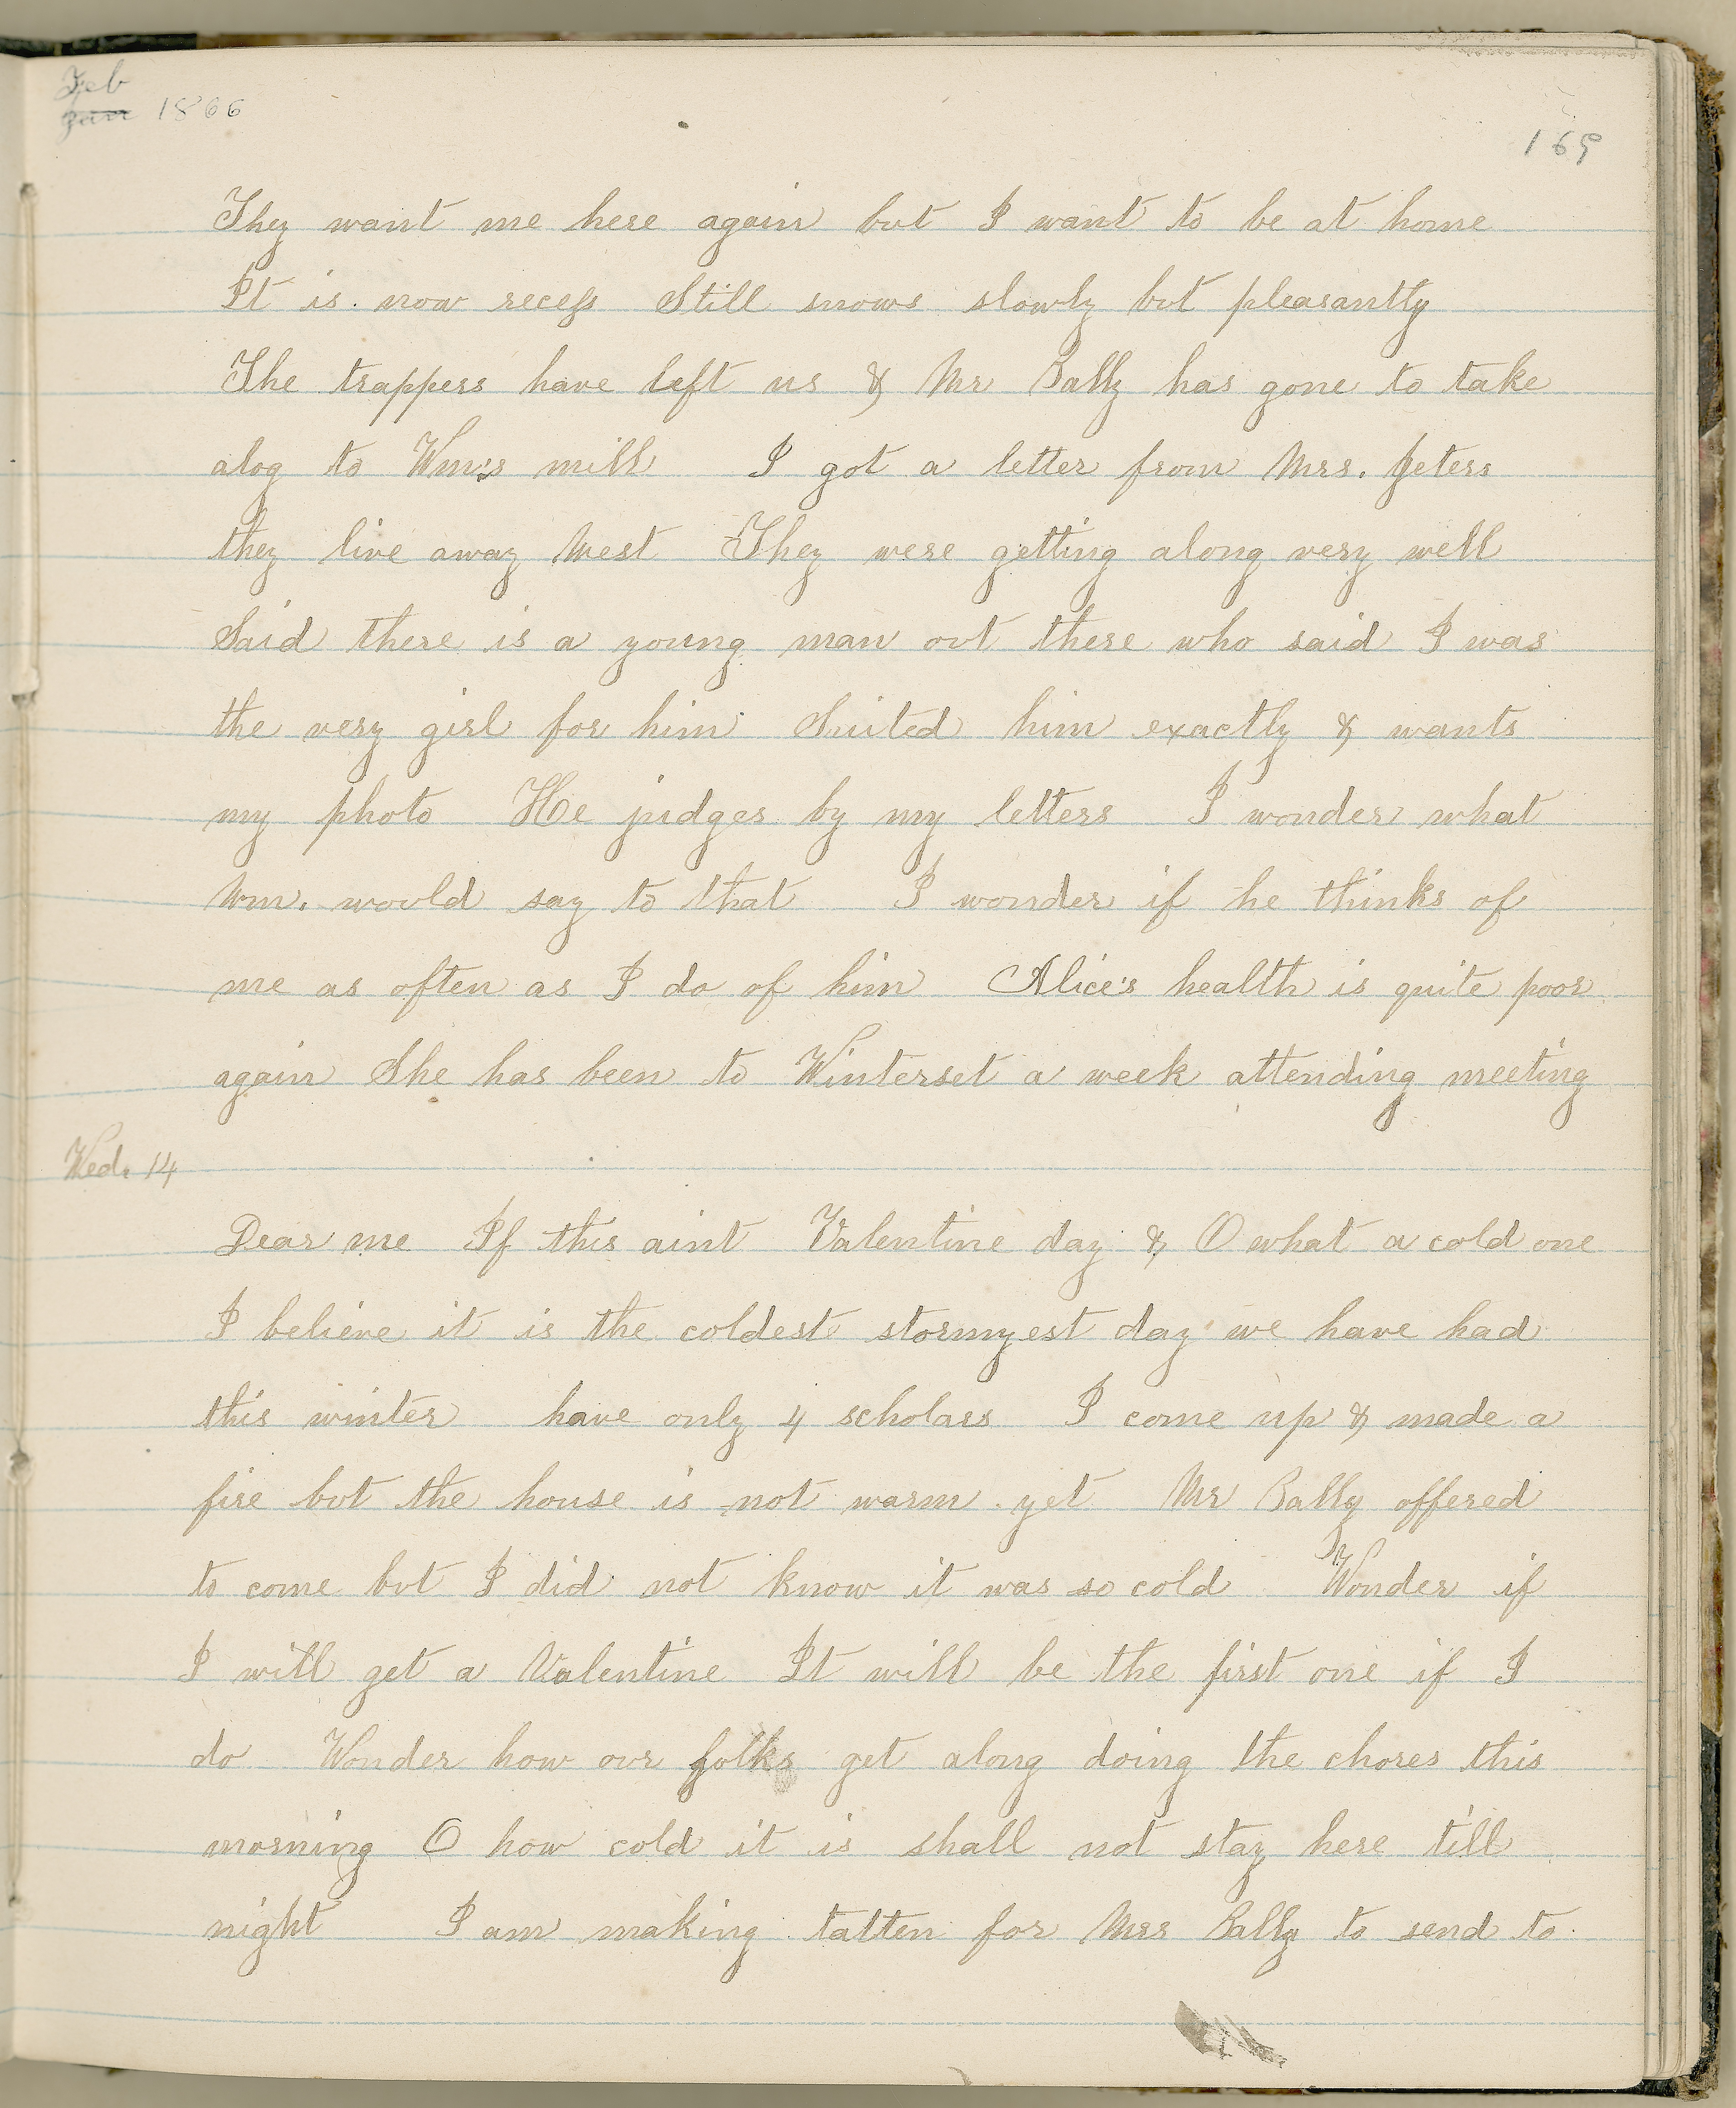 Feb
Jan 1866
169
They want me here again but I want to be at home
It is now recess Still snows slowly but pleasantly
The trappers have left us & Mr Bally has gone to take
alog to Wm's mill I got a letter from Mrs. Jeters
they live away West They were getting along very well
Said there is a young man out there who said I was
the very girl for him Suited him exactly & wants
my photo He judges by my letters I wonder what
Wm. would say to that I wonder if he thinks of
me as often as I do of him Alice's health is quite poor
again She has been to Winterset a week attending meeting
Wed. 14
Dear me If this aint Valentine day & O what a cold one
I believe it is the coldest stormyest day we have had
this winter have only 4 scholars I come up & made a
fire but the house is not warm yet Mr Bally offered
to come but I did not know it was so cold Wonder if
I will get a Valentine It will be the first one if I
do Wonder how our folks get along doing the chores this
morning O how cold it is shall not stay here till
night I am making tatten for Mrs Bally to send to